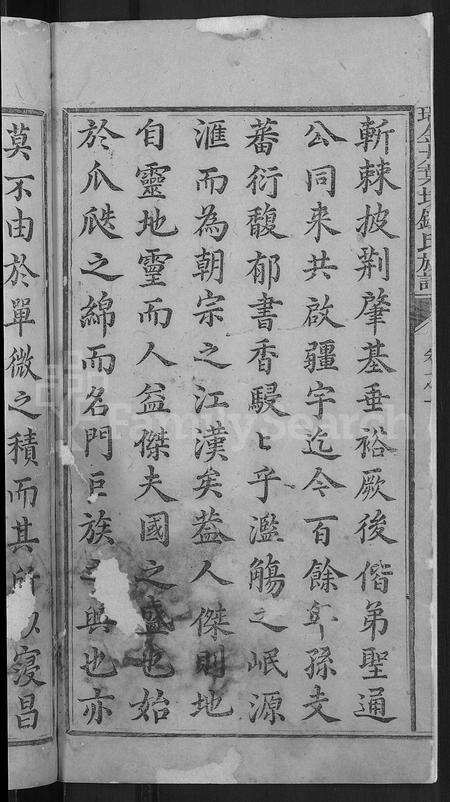 斬棘披荆肇基垂裕厥後偕弟聖通
公同来共啟疆宇迄今百餘年孫支
蕃衍馥郁書香駸〻乎濫觴之岷源
滙而為朝宗之江漢矣葢人傑則地
自靈地靈而人益傑夫國之盛也始
於瓜瓞之綿而名門巨族之興也亦
莫不由於單微之積而其所以寖昌
FamilySearch